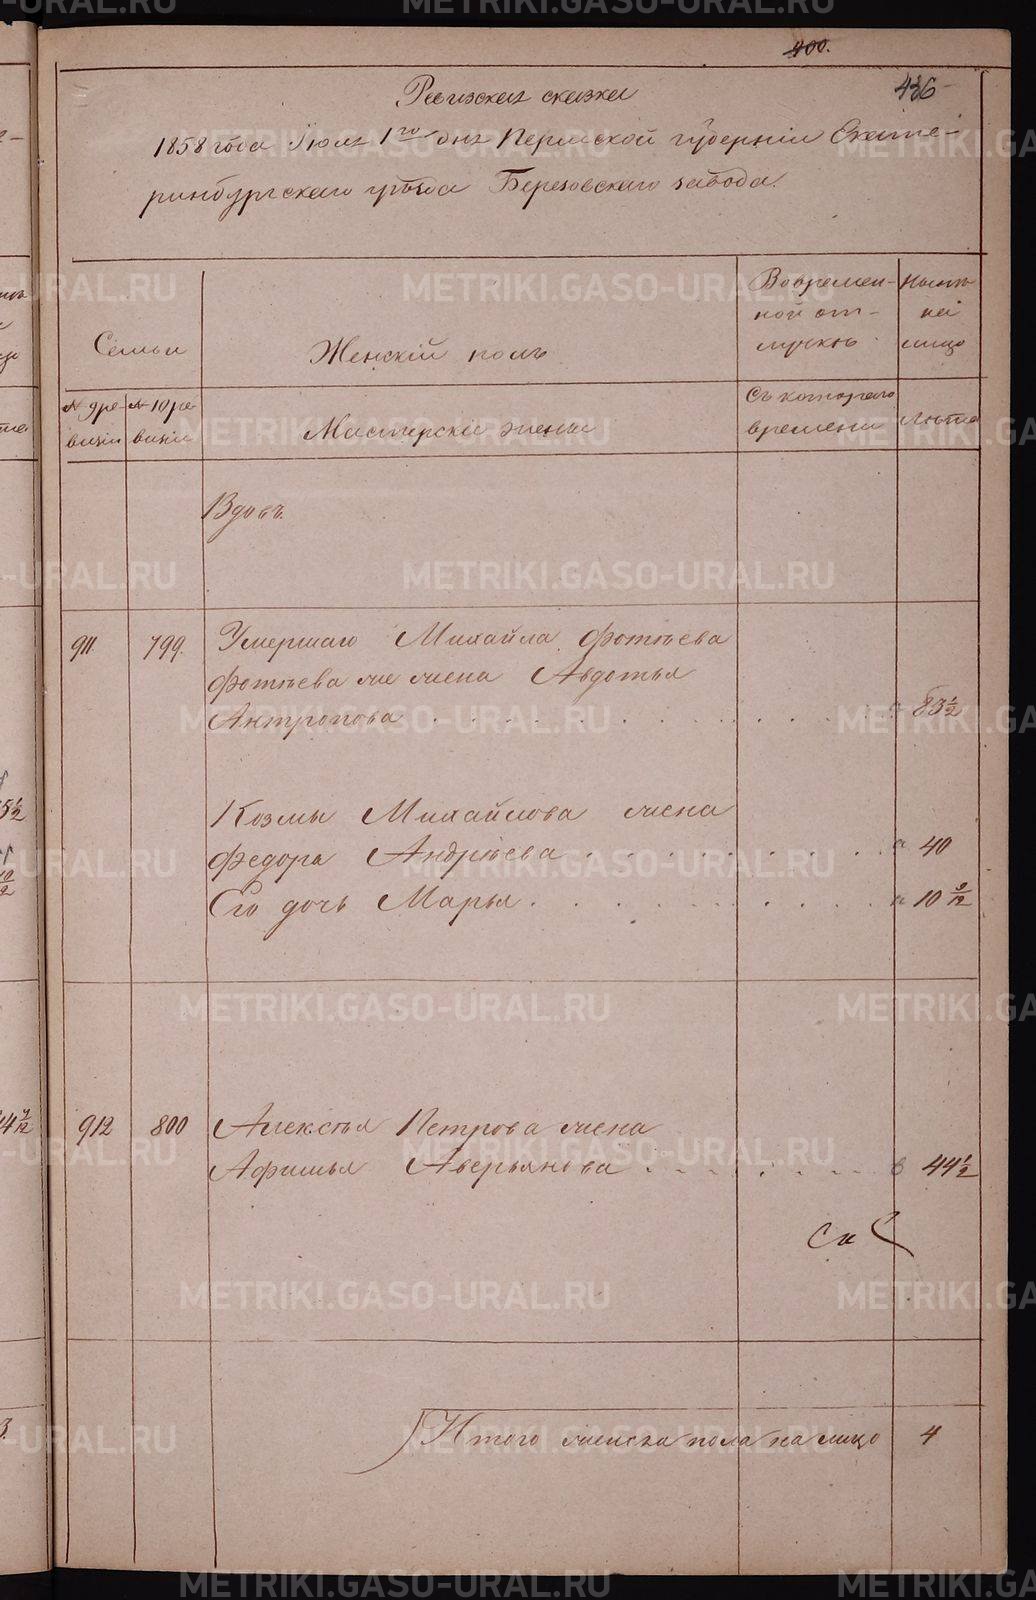 400.
436
Ревизская сказка
1858 года Июля 1го дня Пермской губерніи Екате-
ринбургскаго уѣзда Березовскаго завода.
Семьи
Женскій полъ
Вовремен-
ной от-
лучкѣ
Насто
ней
лицо
№ 9 ре-
визіи
№ 10 ре
визіи
Мастерскіе жены
Съ котораго
времени
Лѣта
Вдовъ.
911.
799.
Умершаго Михайла Фотѣева
Фотѣева же жена Авдотья
Антропова
83 1/2
Козмы Михайлова жена
Федора Андрѣева
40
Его дочь Марья
10 9/12
912
800
Алексѣя Петрова жена
Афимья Аверьянова
44 1/2
Ск
Итого женска пола на лицо
4
METRIKI.GASO-URAL.RU